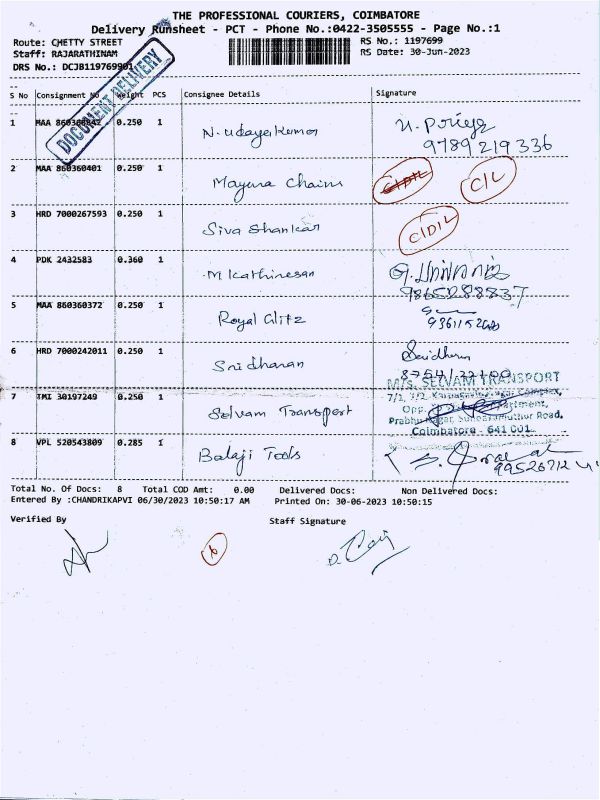 THE PROFESSIONAL COURIERS, COIMBATORE
Delivery Runsheet - PCT - Phone No.:0422-3505555 - Page No.:1
Route: CHETTY STREET RS No.: 1197699
Staff: RAJARATHINAM RS Date: 30-Jun-2023
DRS No.: DCJB119769901
DOCUMENT DELIVERY
S No Consignment No Weight PCS Consignee Details Signature
1 MAA 0.250 1 N. Udaya Kumar
9789219336
2 MAA 860360401 0.250 1 Mayura Chains C/L
3 HRD 7000267593 0.250 1 Siva Shankar C/D/L
4 PDK 2432583 0.360 1 M Kathiresan
9865288837
5 MAA 860360372 0.250 1 Royal Glitz
6 HRD 7000242011 0.250 1 Sridharan
M/s. SELVAM TRANSPORT
7 TMI 30197249 0.250 1 Selvam Transport
Coimbatore - 641 001.
8 VPL 520543809 0.285 1 Balaji Tools
Total No. Of Docs: 8 Total COD Amt: 0.00 Delivered Docs: Non Delivered Docs:
Entered By :CHANDRIKAPVI 06/30/2023 10:50:17 AM Printed On: 30-06-2023 10:50:15
Verified By Staff Signature